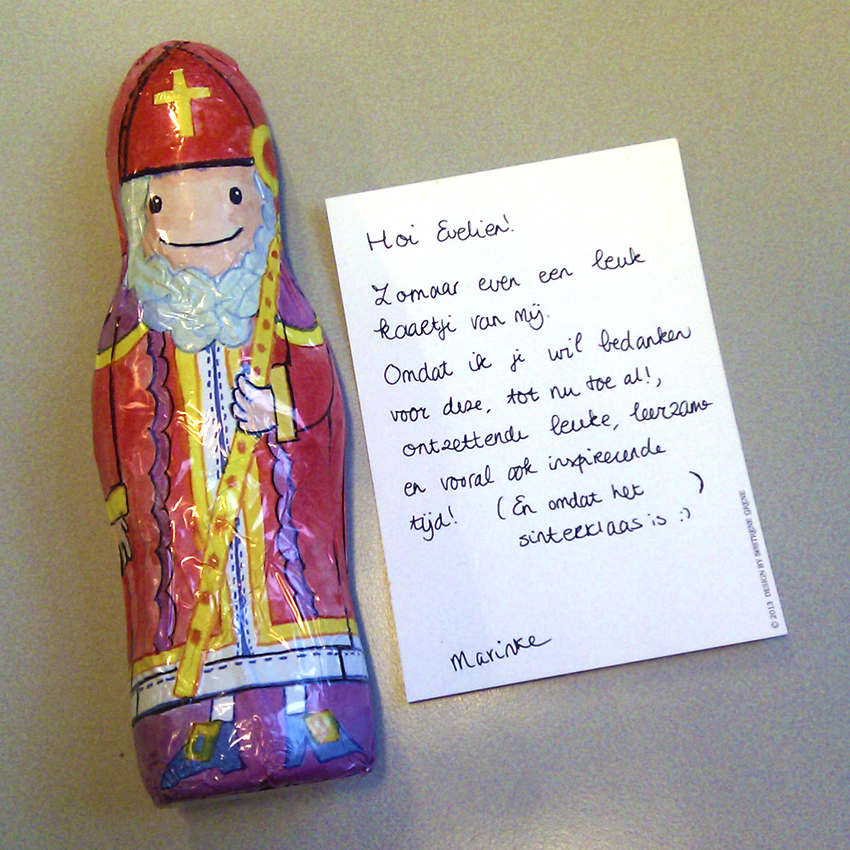 Hoi Evelien!
Zomaar even een leuk
kaartje van mij.
Omdat ik je wil bedanken
voor deze, tot nu toe al!,
ontzettende leuke, leerzame
en vooral ook inspirerende
tijd! (En omdat het
sinterklaas is :) )
Marinke
© 2013 DESIGN BY SØSTRENE GRENE